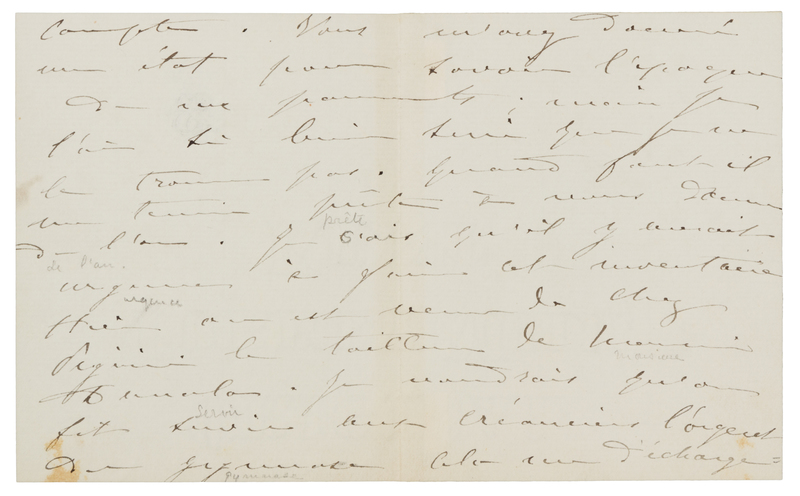 compte. Vous m'avez donné
un état pour savoir l'époque
de mes paiements ; mais je
l'ai si bien serré que je ne
le trouve pas. quand faut-il
me tenir prête à vous donner
prête
de l'an. Je sais qu'il y aurait
de l'an.
urgence à faire cet inventaire
urgence
Hier on est venu de chez
le tailleur de
Je voudrais qu'on
servir
fit servir aux créanciers l'argent
du gymnase cela me décharge=
gymnase